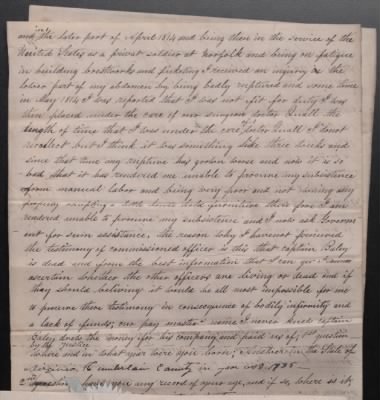 in the later part of April 1814 and being then in the service of the
United States as a privat soldier at Norfolk and being on fatigue
in building brestworks and picketing I received an injury in the
lower part of my abdomen by being badly ruptured and some time
in May 1814 I was reported that I was not fit for duty I was
then placed under the care of our surgeon doctor Quall the
length of time that I was under the care doctor Quall I do not
recolect but I think it was something like three weeks and
since that time my rupture has grown worse and now it is so
bad that it has rendered me unable to procure my subsistence
from manual labor and being very poor and not having any
property excepting a little house hold furniture there fore I am
rendered unable to procure my subsistence and I now ask Goverm
ent for sum assistance. the reason why I have not procured
the testimony of commissioned officer is this that captain Exley
is dead and from the best information that I can get I cannot
ascertain whether the other officers are living or dead and if
they should be living it would be all most impossible for me
to procure there testimony in consequence of bodily infirmity and
a lack of funds; our pay masters name I never knew captain
Exley drew the money for his company and paid us of; 1st question
by the justice
where and in what year were you born; Answer in the State of
Virginia County in year
2 question have you any record of your age, and if so, where is it